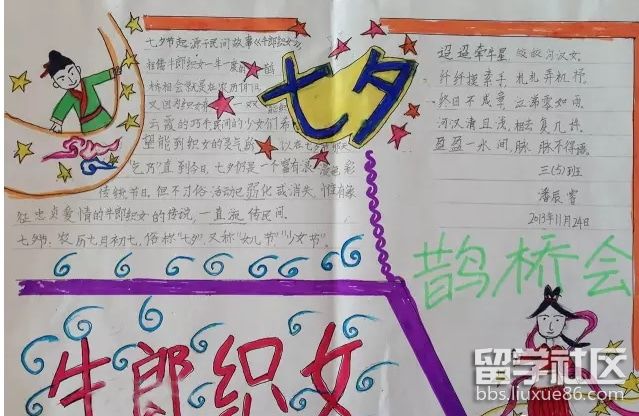 七夕节起源于民间故事《牛郎织女》
相传牛郎织女一年一度的鹊
桥相会就是在农历
又因为织女
云霞的巧
望能
"乞巧"直到今日,七夕仍是一个富有浪漫色彩
传统节日。但不少俗活动已弱化或消失,惟有象
征忠贞爱情的牛郎织女的传说,一直流传民间。
七夕节:农历七月初七,俗称"七夕",又称"女儿节""少女节"。
七夕
迢迢牵牛星,皎皎河汉女。
纤纤擢素手,札札弄机杼,
终日不成章,泣涕零如雨
河汉清且浅,相去复几许。
盈盈一水间,脉脉不得语。
三(5)班
潘辰睿
2013年11月24日
鹊桥会
牛郎织女
留学社区
bbs.liuxue86.com